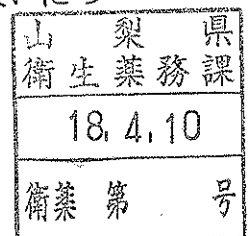 山梨県
衛生薬務課
18.4.10
衛薬第 号